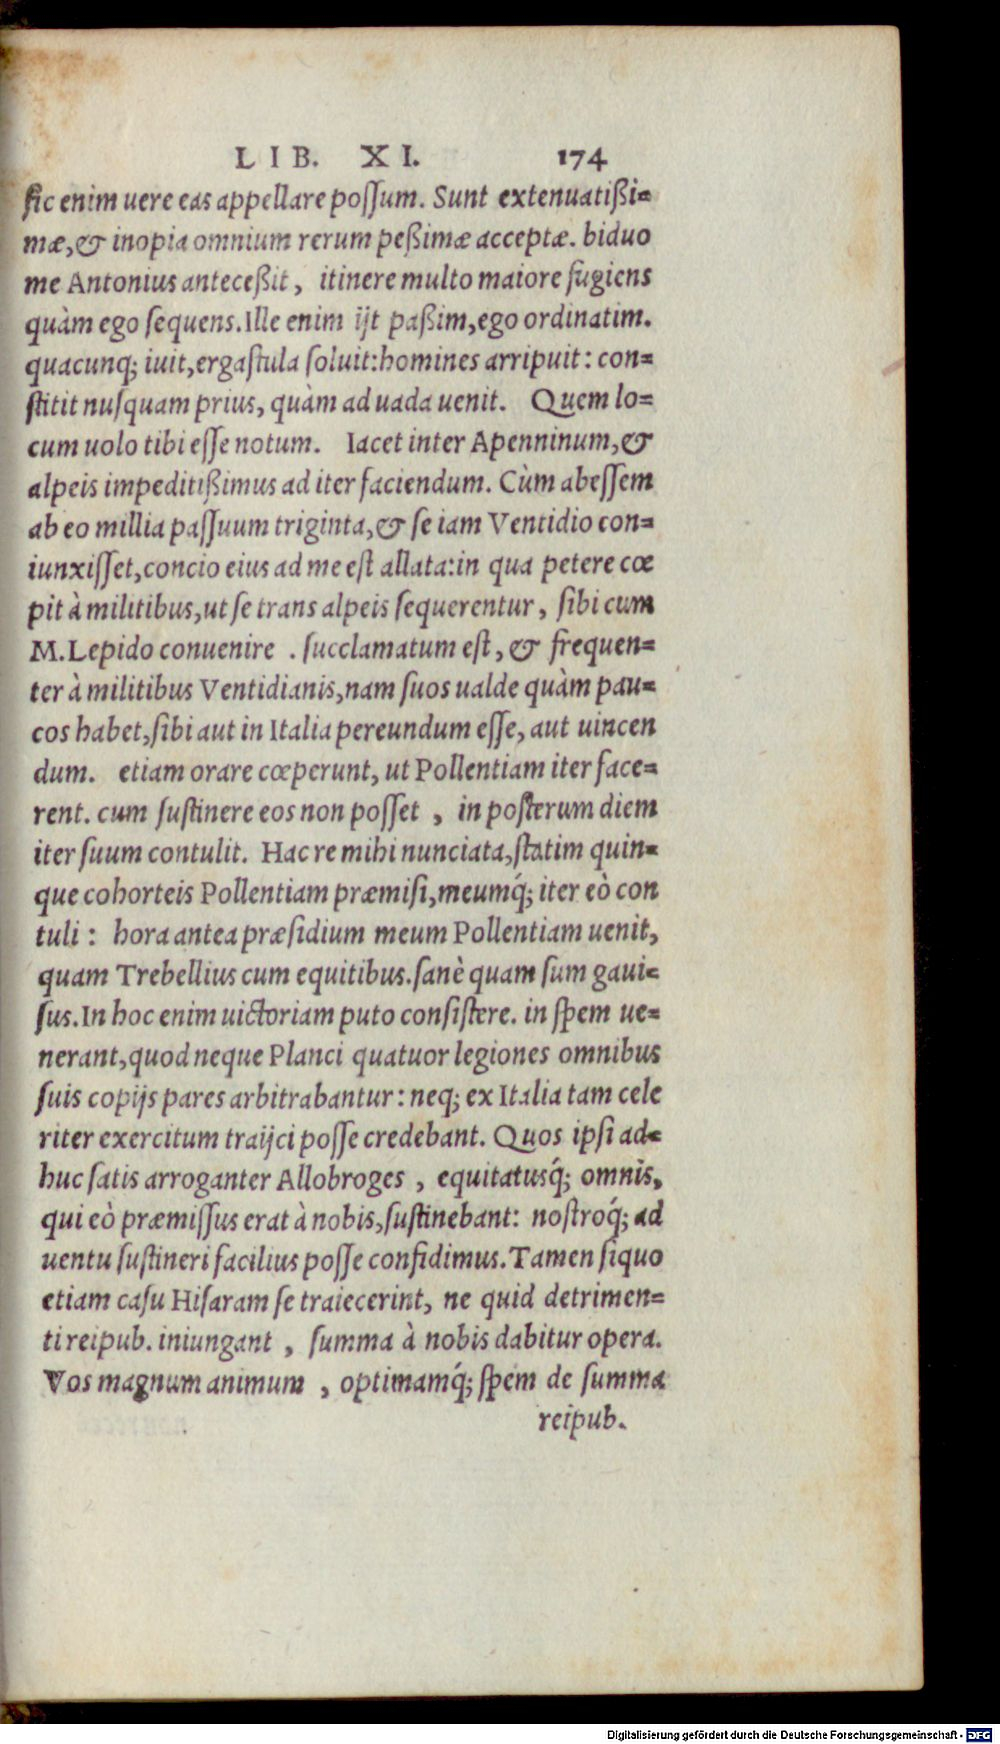 LIB. XI. 174
sic enim uere eas appellare possum. Sunt extenuatißi=
mæ,& inopia omnium rerum peßimæ acceptæ. biduo
me Antonius anteceßit, itinere multo maiore fugiens
quàm ego sequens. Ille enim ijt paßim, ego ordinatim.
quacunq; iuit, ergastula soluit: homines arripuit: con=
stitit nusquam prius, quàm ad uada uenit. Quem lo=
cum uolo tibi esse notum. Iacet inter Apenninum,&
alpeis impeditißimus ad iter faciendum. Cùm abessem
ab eo millia passuum triginta,& se iam Ventidio con=
iunxisset, concio eius ad me est allata: in qua petere cœ
pit à militibus, ut se trans alpeis sequerentur, sibi cum
M. Lepido conuenire . succlamatum est, & frequen=
ter à militibus Ventidianis, nam suos ualde quàm pau=
cos habet, sibi aut in Italia pereundum esse, aut uincen
dum. etiam orare cœperunt, ut Pollentiam iter face=
rent. cum sustinere eos non posset , in posterum diem
iter suum contulit. Hac re mihi nunciata, statim quin=
que cohorteis Pollentiam præmisi, meumq́; iter eò con
tuli : hora antea præsidium meum Pollentiam uenit,
quam Trebellius cum equitibus. sanè quam sum gaui=
sus. In hoc enim uictoriam puto consistere. in spem ue=
nerant, quod neque Planci quatuor legiones omnibus
suis copijs pares arbitrabantur: neq; ex Italia tam cele
riter exercitum traijci posse credebant. Quos ipsi ad=
huc satis arroganter Allobroges , equitatusq́; omnis,
qui eò præmissus erat à nobis, sustinebant: nostroq́; ad
uentu sustineri facilius posse confidimus. Tamen siquo
etiam casu Hisaram se traiecerint, ne quid detrimen=
ti reipub. iniungant , summa à nobis dabitur opera.
Vos magnum animum , optimamq́; spem de summa
reipub.
Digitalisierung gefördert durch die Deutsche Forschungsgemeinschaft - DFG